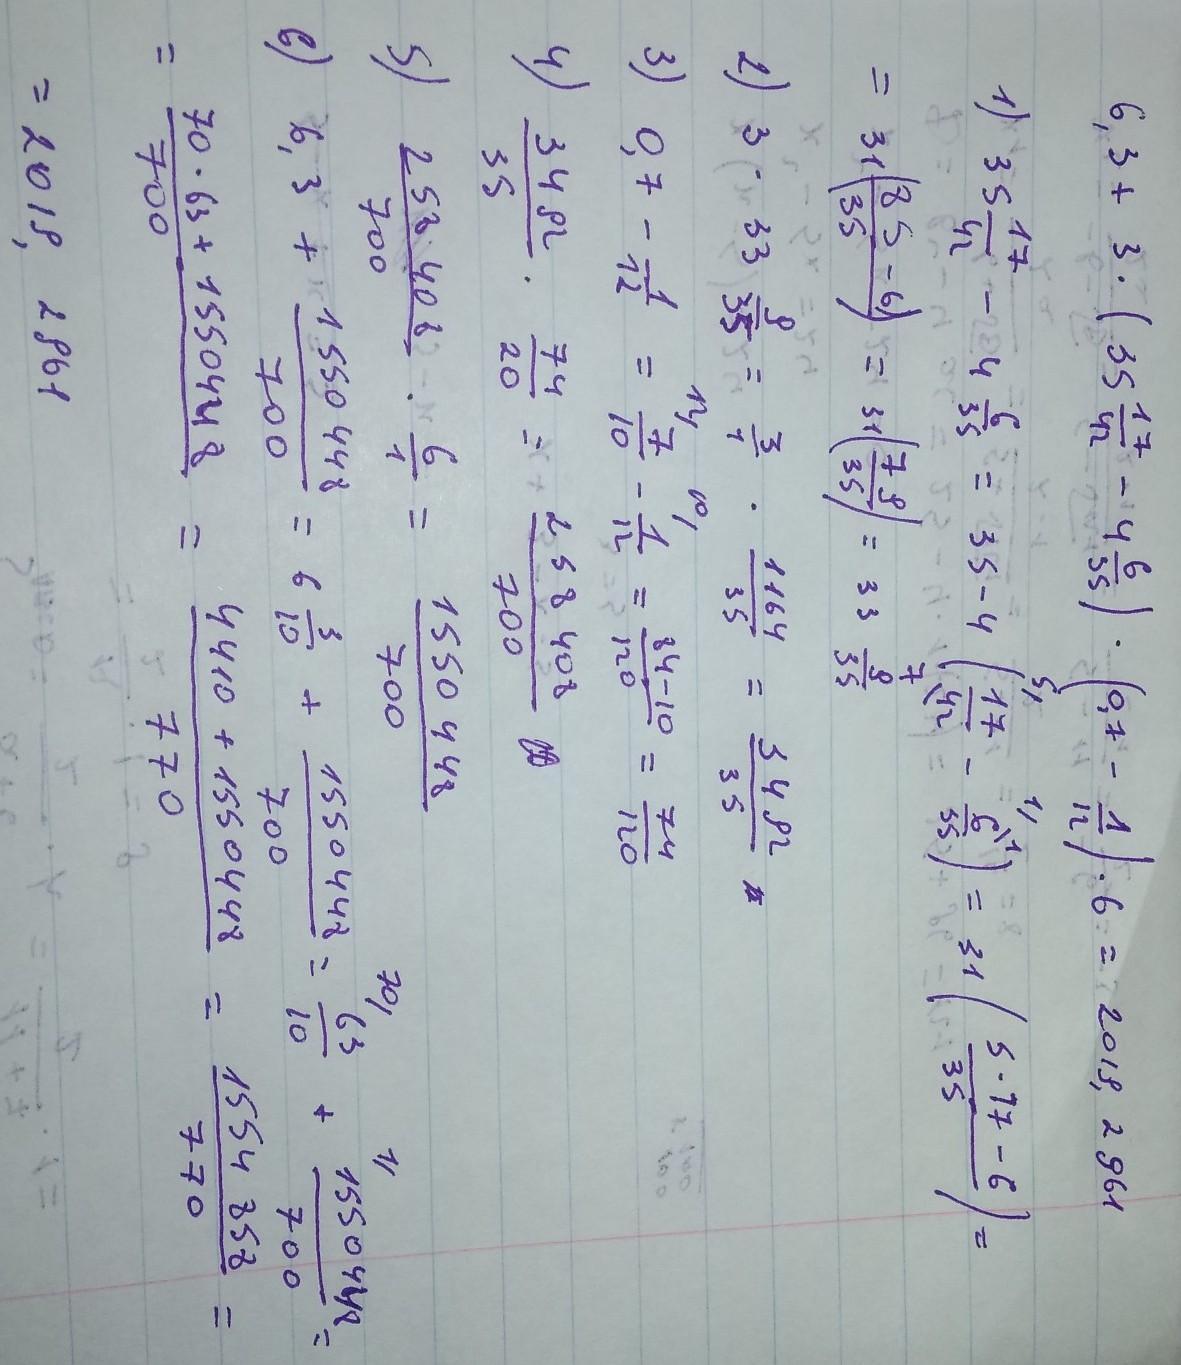 6,3 + 3 · (35 17/42 - 4 6/35) · (0,7 - 1/12) · 6 = 2018, 2961
1) 35 17/42 - 4 6/35 = 35-4 (17/42 - 6/35) = 31 (5·17-6/35) =
= 31 (85-6/35) = 31 (79/35) = 33 9/35
2) 3 · 33 9/35 = 3/1 · 1164/35 = 3492/35
3) 0,7 - 1/12 = 7/10 - 1/12 = 84-10/120 = 74/120
4) 3492/35 · 74/20 = 258408/700
5) 258408/700 · 6/1 = 1550448/700
6) 6,3 + 1550448/700 = 6 3/10 + 1550448/700 = 63/10 + 1550448/700 =
= 70·63+1550448/700 = 4410+1550448/770 = 1554858/770 =
= 2018, 2961